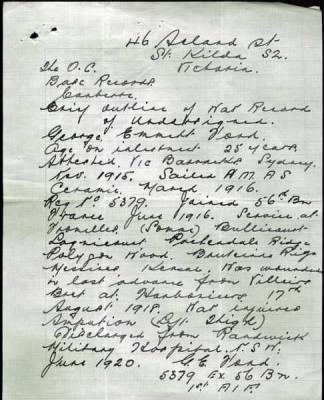 46 Acland St
St Kilda S2.
Victoria.
The O.C.
Base Records
Canberra.
Brief outline of War Record
of Undersigned.
George Emmett Vard.
Age on enlistment 25 years
Attested Vic Barracks Sydney
Nov. 1915. Sailed A.M.A.S
Ceramic. March 1916.
Reg No 5379. Joined 56th Bn
France June 1916. Service at
Fromelles, (Somme) Bullicourt
Lagnicourt. Passchendale Ridge
Polygon Wood.
Messines. Was wounded
in last advance from Villers
Bret at Harbonieres 17th
August 1918. Was required
Amputation ( Thigh)
Discharged from Randwick
Military Hospital. N.S.W.
June 1920. G.E. Vard.
5379 Ex 56 Bn.
1st A.I.F.